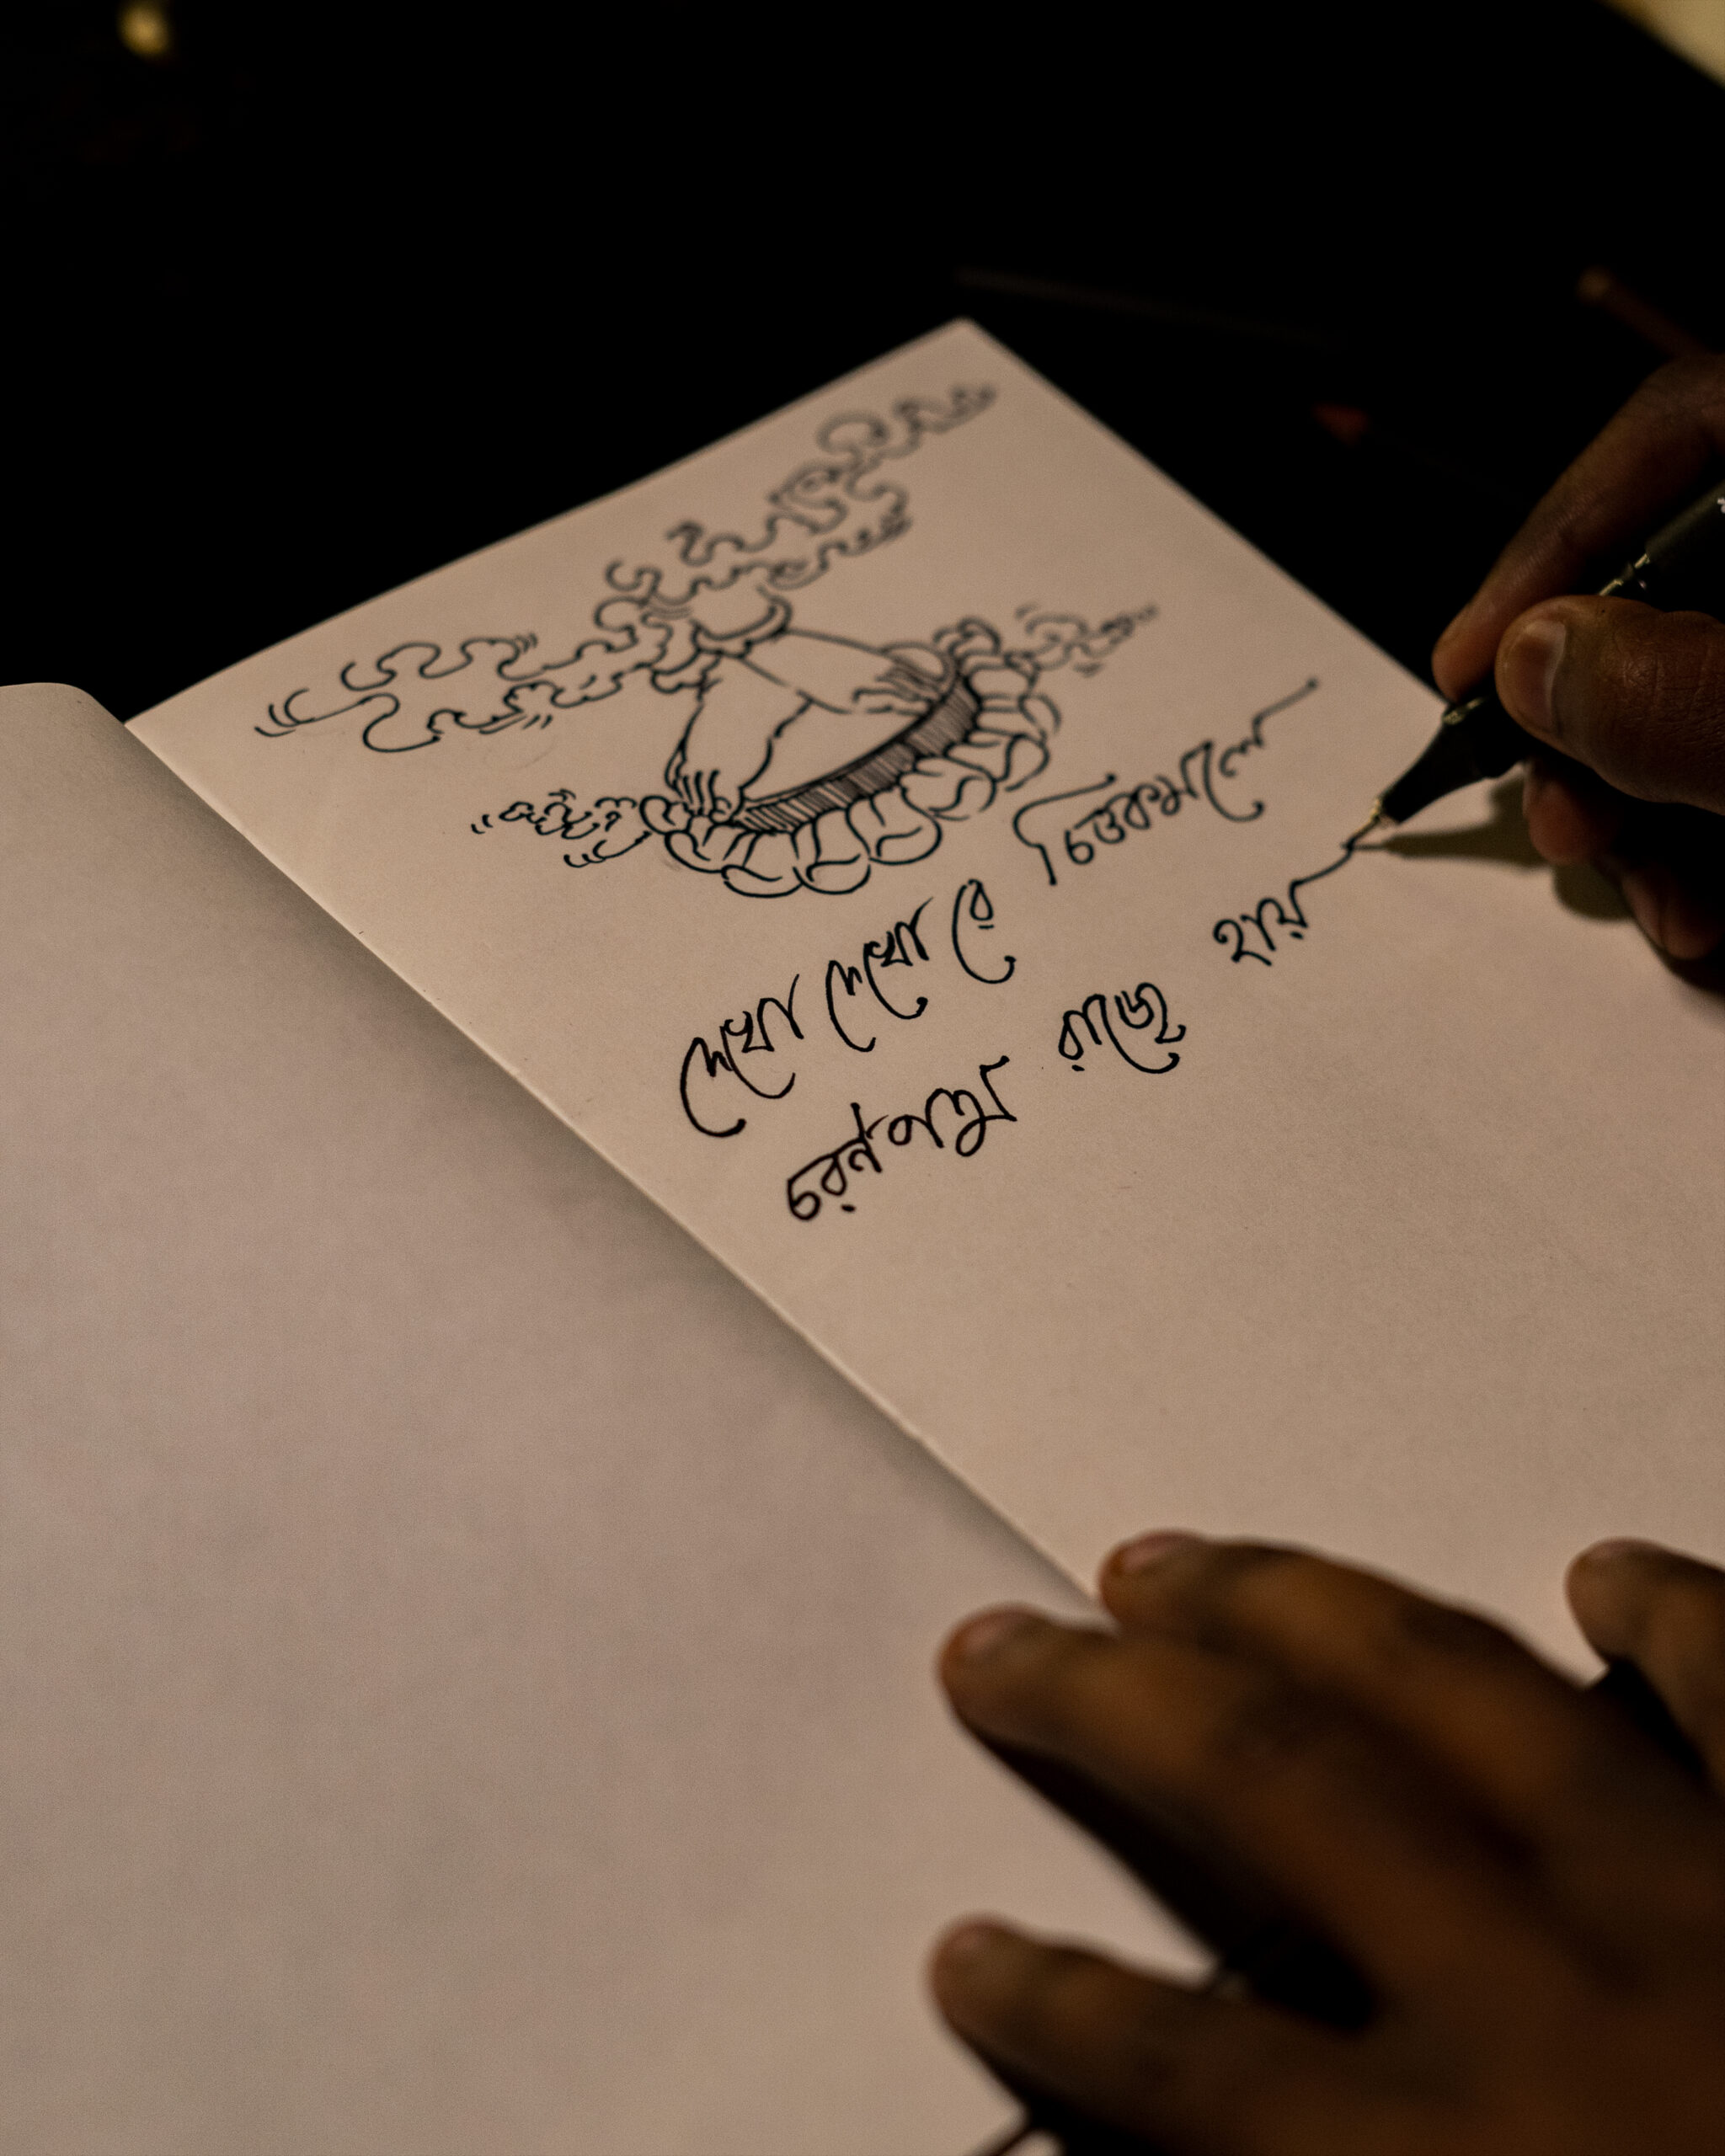 দেখো দেখো রে চিত্তকমলে
চরণপদ্ম রাজে হায়